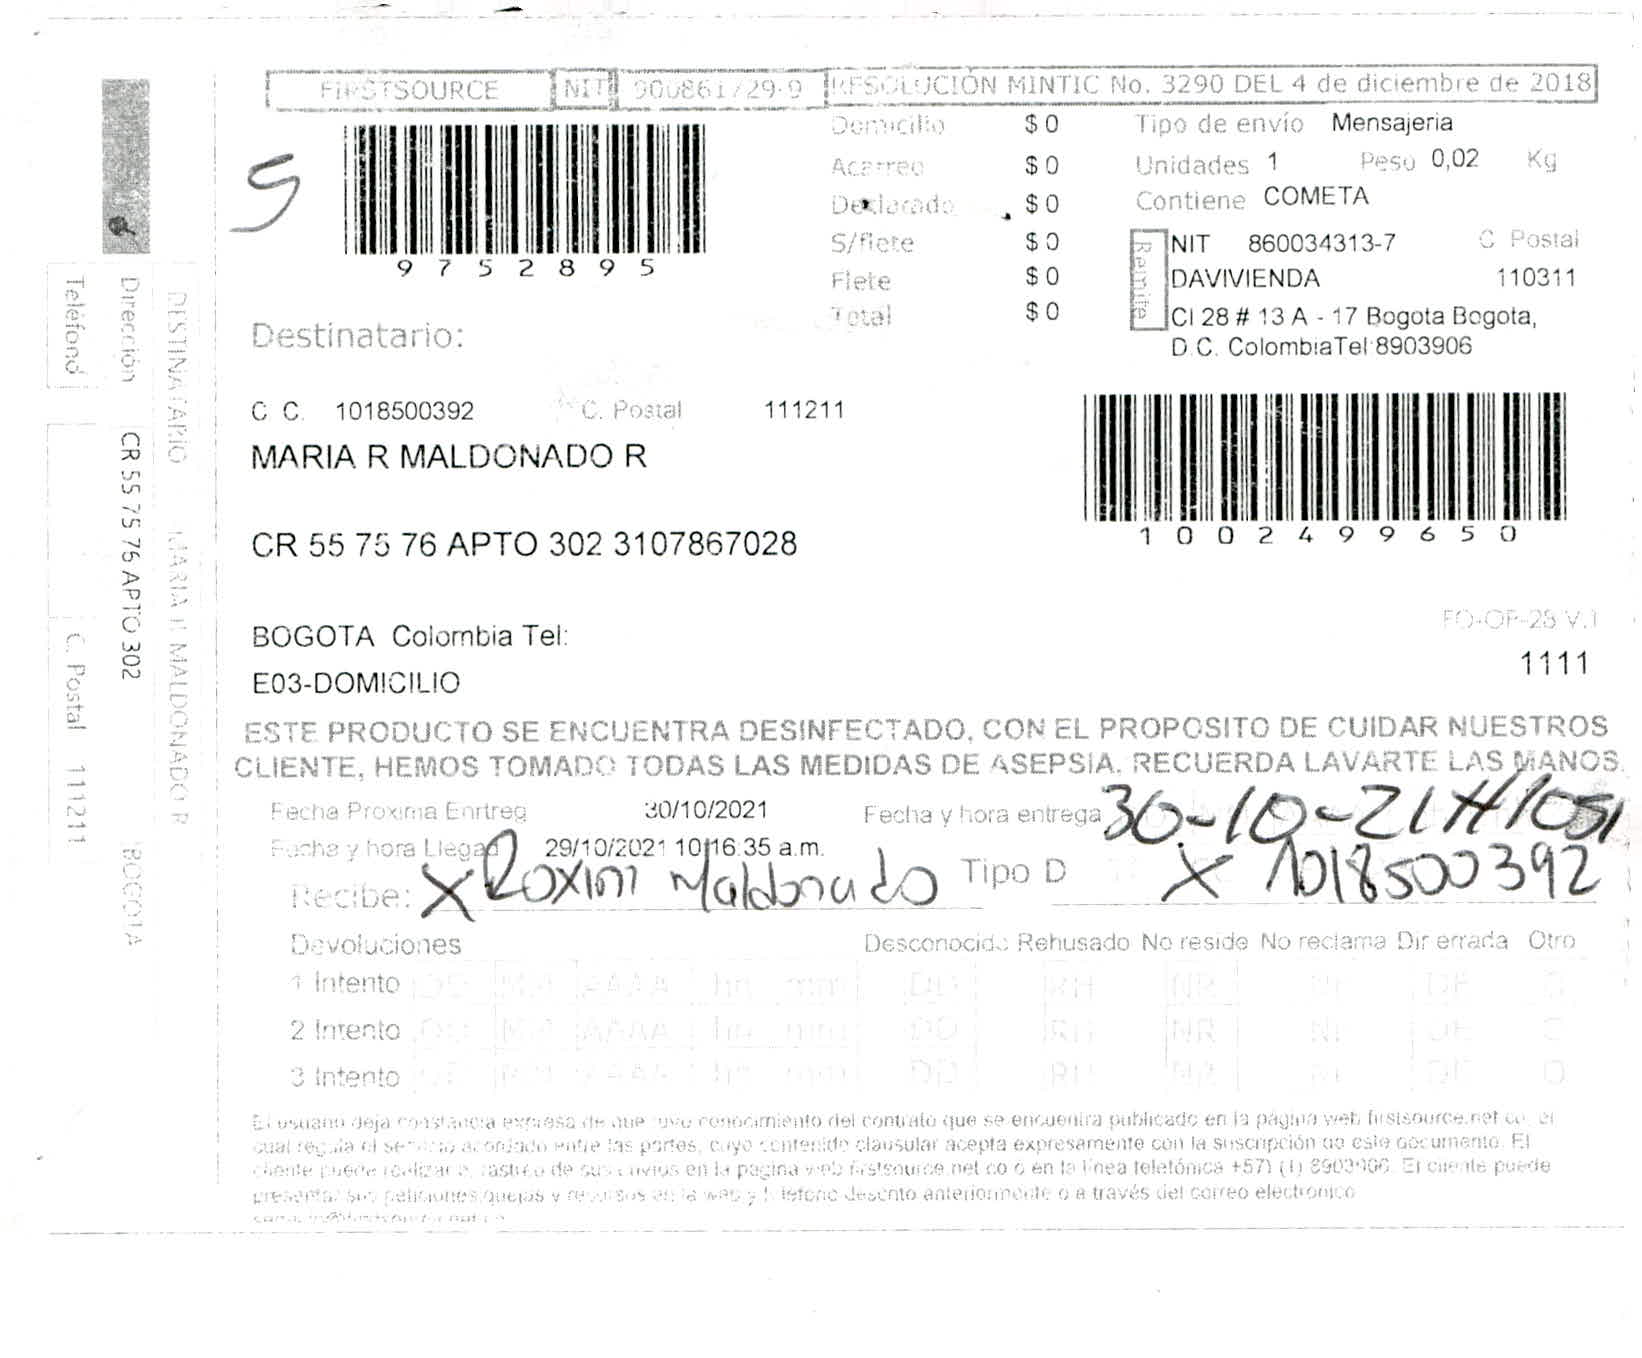 FIRSTSOURCE NIT 900861729-9 RESOLUCIÓN MINTIC No. 3290 DEL 4 de diciembre de 2018
5
9752895
Domicilio $ 0
Acarreo $ 0
Declarado $ 0
S/flete $ 0
Flete $ 0
Total $ 0
Tipo de envío Mensajeria
Unidades 1 Peso 0,02 Kg
Contiene COMETA
Remite
NIT 860034313-7 C Postal
DAVIVIENDA 110311
Cl 28 # 13 A - 17 Bogota Bogota,
D.C. ColombiaTel 8903906
Destinatario:
C C. 1018500392 C. Postal 111211
MARIA R MALDONADO R
1002499650
CR 55 75 76 APTO 302 3107867028
BOGOTA Colombia Tel:
FO-OP-28 V.1
E03-DOMICILIO
1111
ESTE PRODUCTO SE ENCUENTRA DESINFECTADO, CON EL PROPOSITO DE CUIDAR NUESTROS
CLIENTE, HEMOS TOMADO TODAS LAS MEDIDAS DE ASEPSIA. RECUERDA LAVARTE LAS MANOS.
Fecha Proxima Enrtreg 30/10/2021 Fecha y hora entrega 30-10-21 H1051
Fecha y hora Llegad 29/10/2021 10:16:35 a.m.
Recibe: X Roxini Maldonado Tipo D X 1018500392
Devoluciones Desconocido Rehusado No reside No reclama Dir errada Otro
1 Intento DD MM AAAA hh mm DD RH NR NI DE O
2 Intento DD MM AAAA hh mm DD RH NR NI DE O
3 Intento DD MM AAAA hh mm DD RH NR NI DE O
El usuario deja constancia expresa de que tuvo conocimiento del contrato que se encuentra publicado en la página web firstsource.net.co, el
cual regula el servicio acordado entre las partes, cuyo contenido clausular acepta expresamente con la suscripción de este documento. El
cliente puede realizar el rastreo de sus envios en la pagina web firstsource.net.co o en la línea telefónica +571 (1) 8903906. El cliente puede
presentar sus peticiones quejas y recursos en la web y telefono descrito anteriormente o a través del correo electronico
DESTINATARIO MARIA R MALDONADO R
Dirección CR 55 75 76 APTO 302 BOGOTA
Teléfono C. Postal 111211